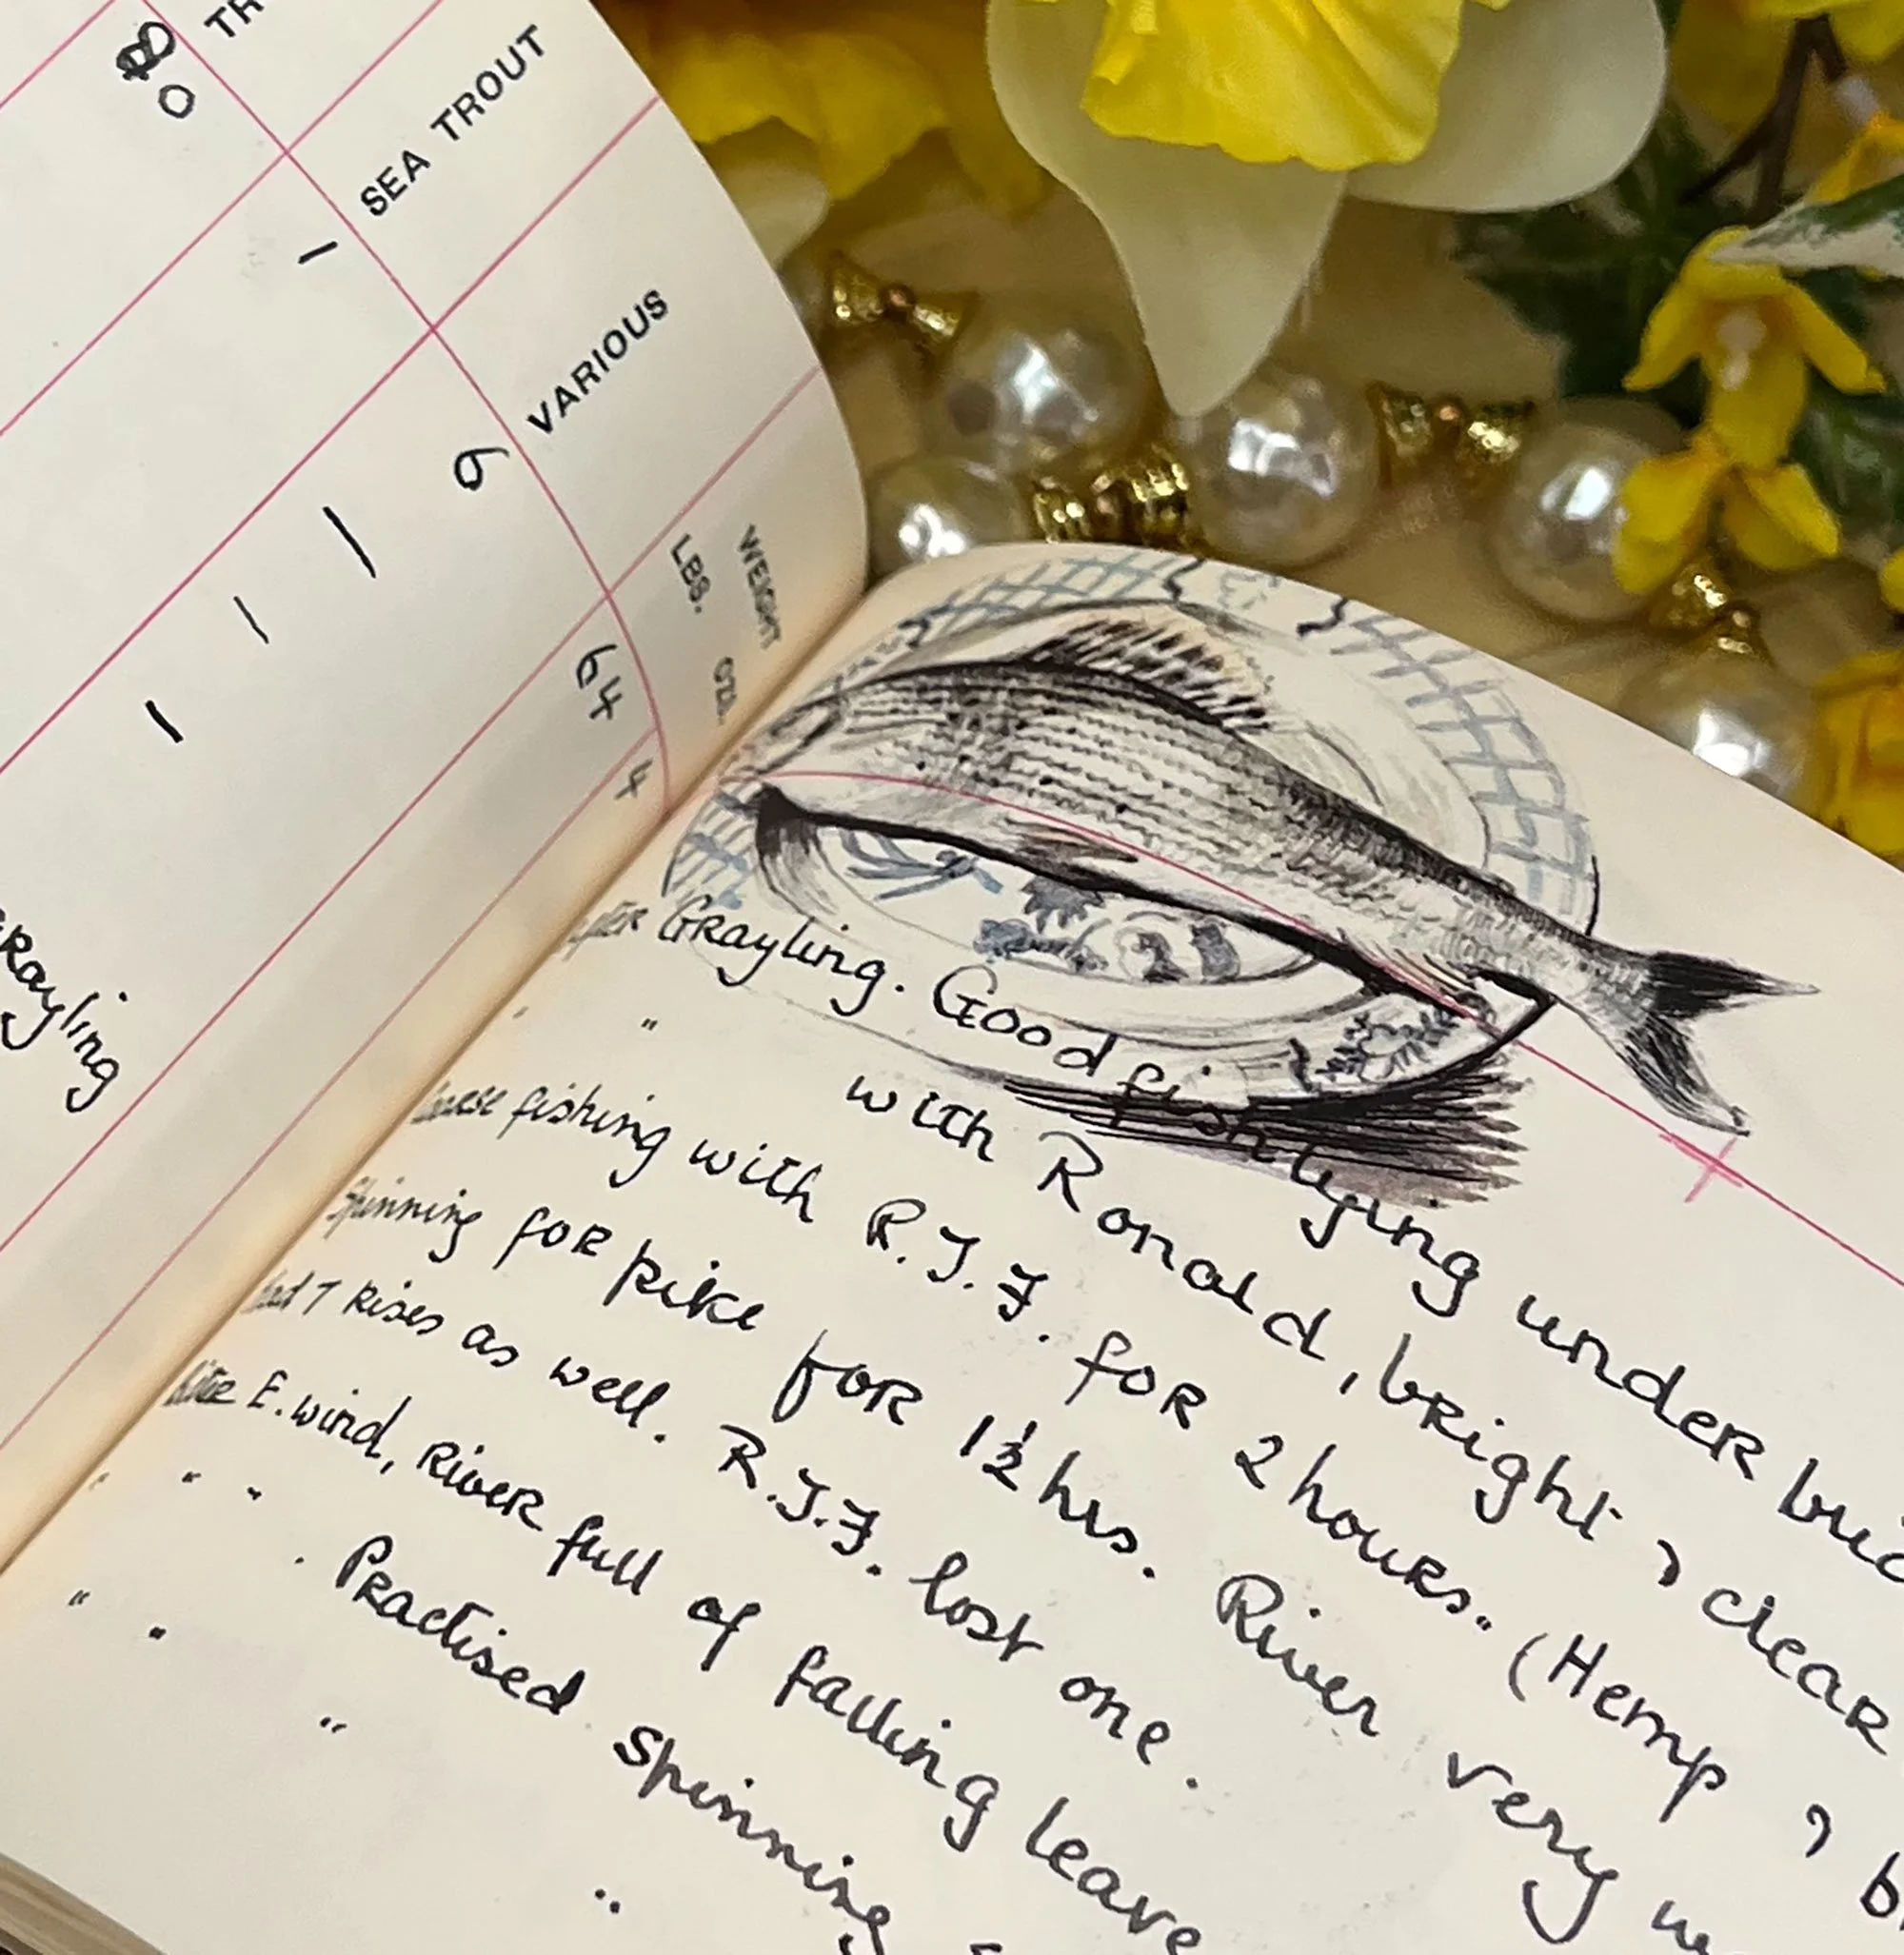 TR
SEA TROUT
VARIOUS
WEIGHT
LBS. OZ.
0
1
6
64 4
Grayling
after Grayling. Good fish lying under
" " with Ronald, bright & clear
Coarse fishing with R.J.F. for 2 hours. (Hemp &
Spinning for pike for 1½ hrs. River very
had 7 rises as well. R.J.F. lost one.
E. wind, River full of falling
" " " . Practised spinning
" " " "